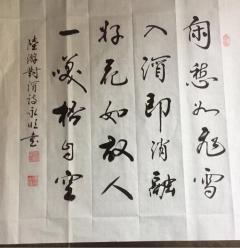 闲愁如飞雪
入酒即消融
好花如故人
一笑杯自空
陆游对酒诗永旺书